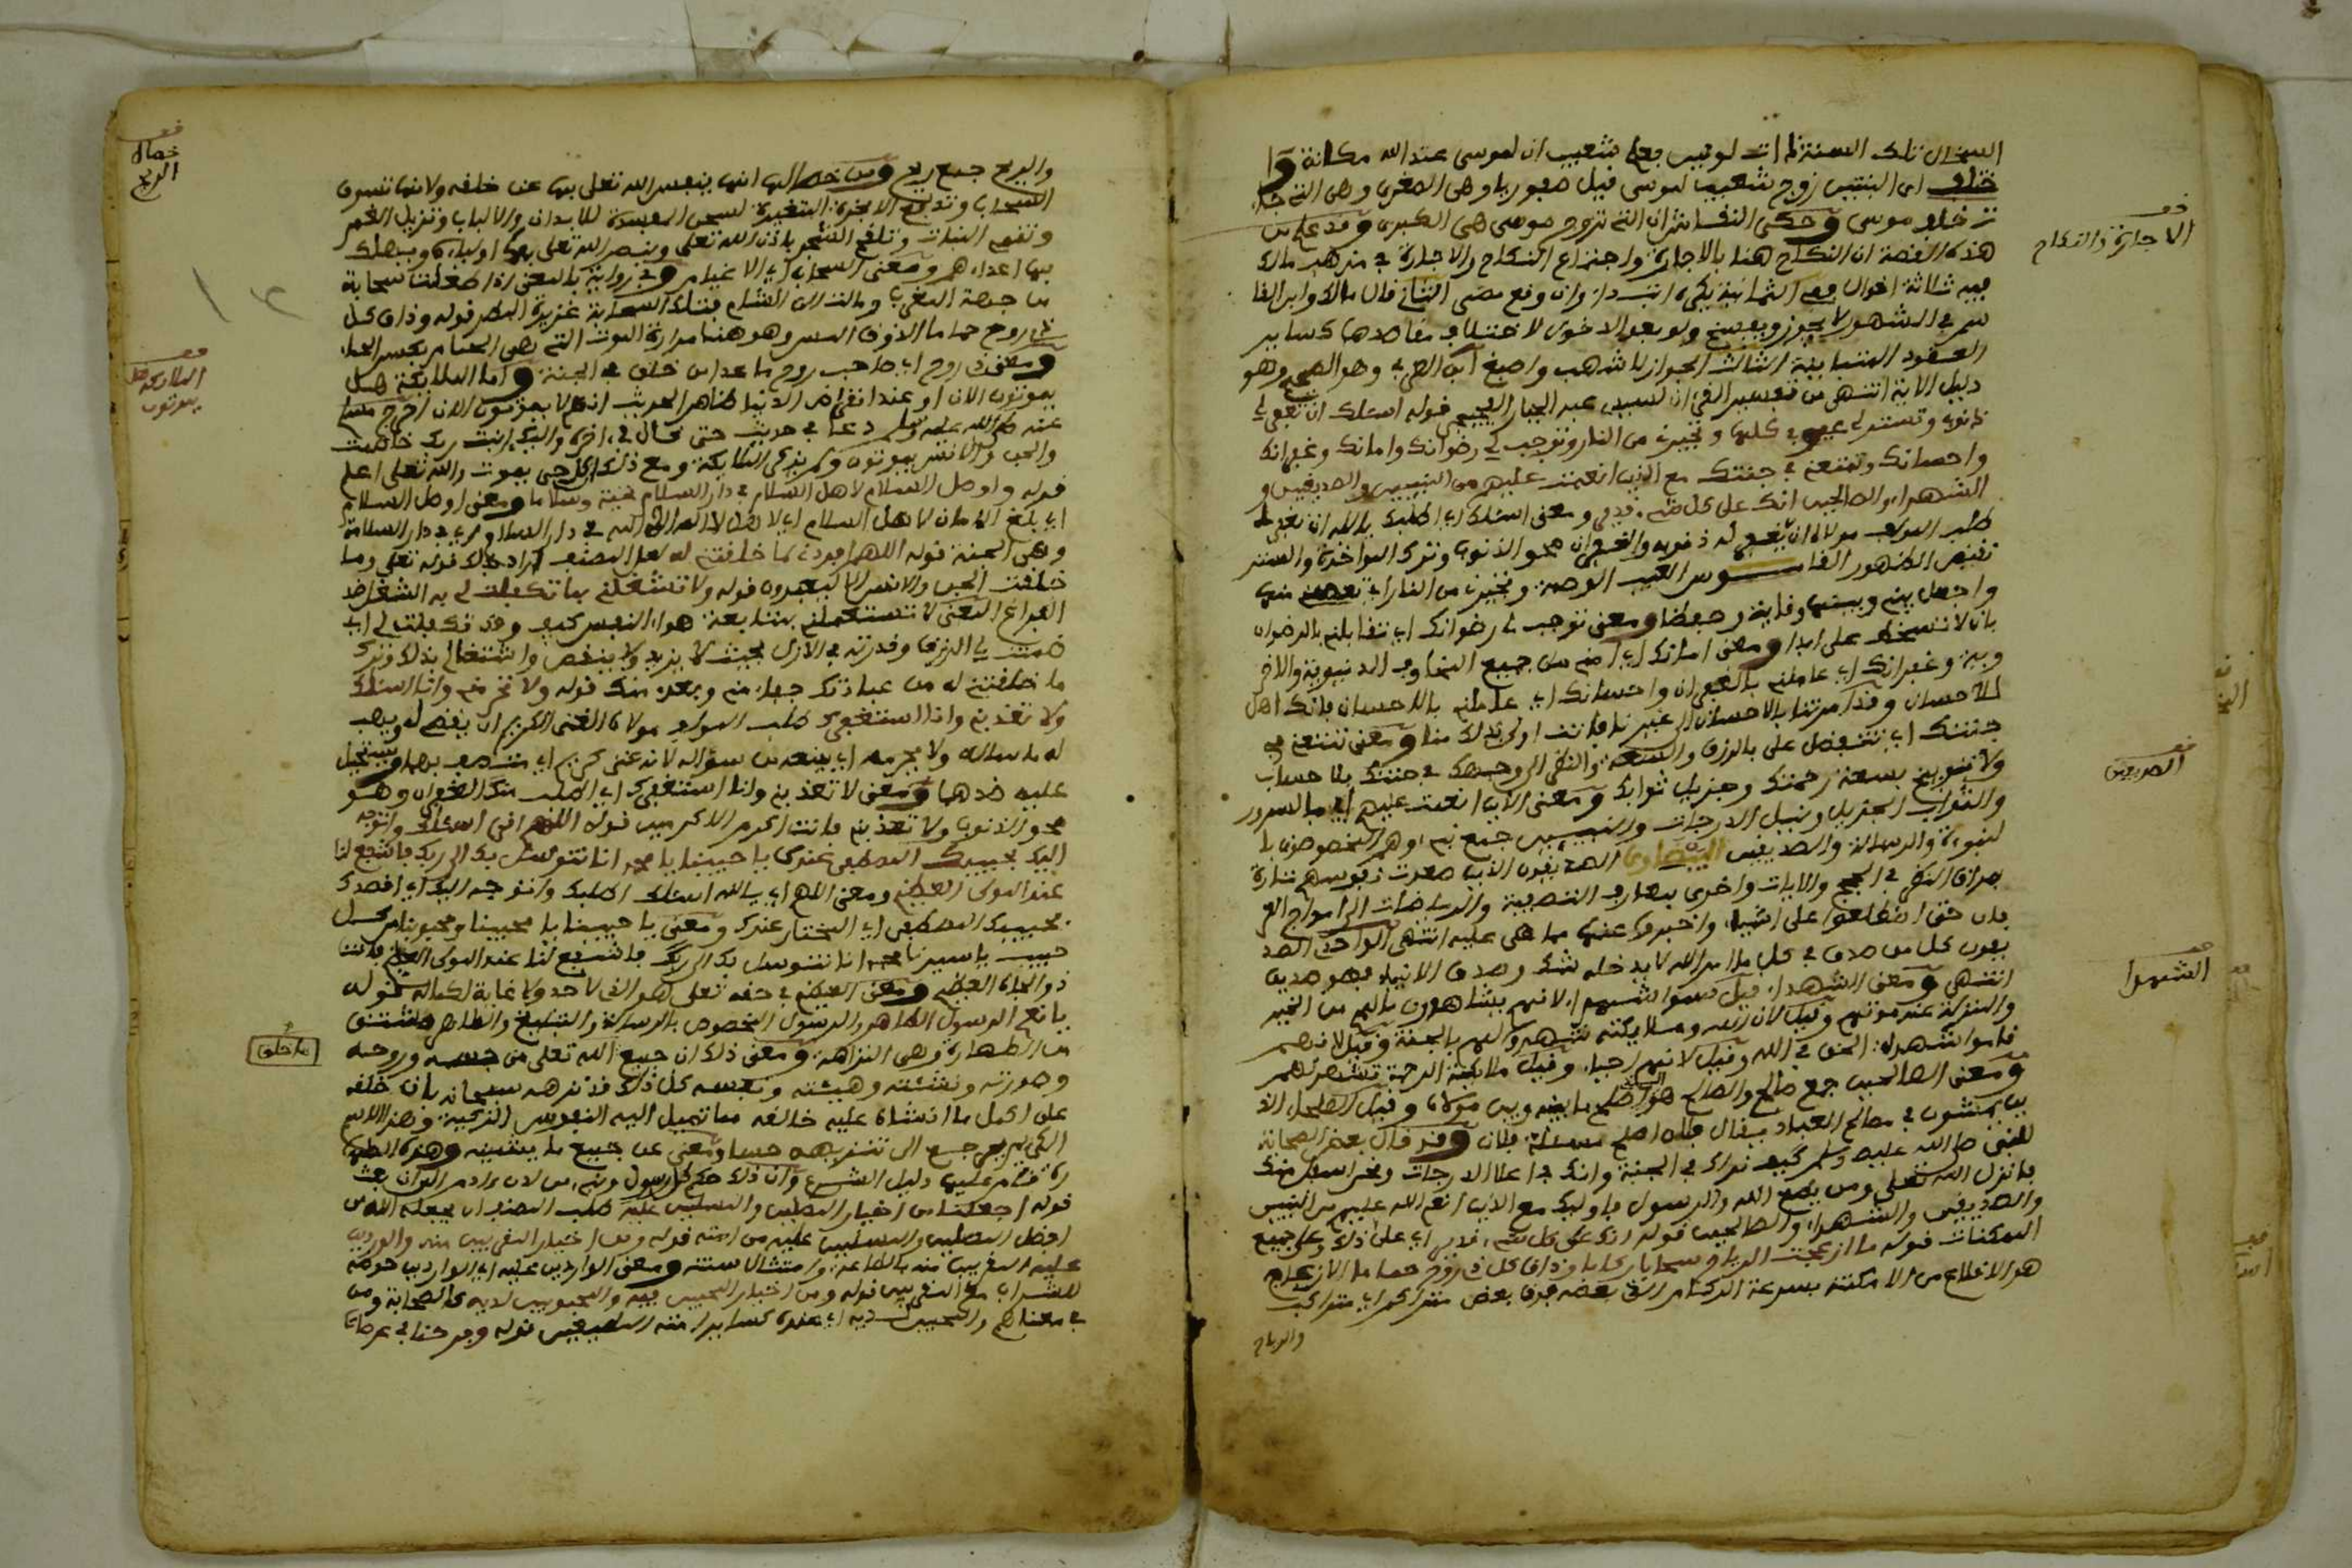 السخال تلك السنة ذات لونين فعلم شعيب ان لموسى عند الله مكانة و
اي البنتين زوج شعيب لموسى فيل صفوريا وهي الصغرى وهي التي
موسى وحكى النقاش ان التي تزوج موسى هي الكبرى وقد علم من
هذه القصة ان النكاح هنا بالاجارة واجتماع النكاح والاجارة في مذهب مالك
فيه ثلاثة اقوال
في الشهور لا يجوز ويفسخ ولو بعد الدخول لاختلاف مقاصدهما كساير
العقود المتباينة الثالث الجواز لاشهب واصبغ ابن العربي وهو الصحيح وهو
دليل الاية انتهى من تفسير القرءان لسيدي عبد الجبار الفجيجي قوله اسئلك ان تغفر لي
ذنوبي وتستر لي عيوبي كلها وتجيرني من النار وتوجب لي رضوانك وامانك وغفرانك
واحسانك وتمتعني في جنتك مع الذين انعمت عليهم من النبيين والصديقين و
الشهداء والصالحين انك على كل شيء قدير ومعنى اسئلك اي اطلبك يا الله ان تغفر لي
طلب المولف مولانا ان يغفر له ذنوبه والغفران محو الذنوب وترك المواخذة والستر
نقيض الظهور القاموس العيب الوصمة وتجيرني من النار اي تعصمني منها
واجعل بيني وبينها وقاية وحفظا ومعنى توجب لي رضوانك اي تقابلني بالرضوان
بان لا تسخط علي ابدا ومعنى امانك اي امني من جميع المخاوف الدنيوية والاخر
وية وغفرانك اي عاملني بالغفران واحسانك اي عاملني بالاحسان فانك اهل
للاحسان وقد امرتنا بالاحسان الى غيرنا فانت اولى بذلك منا ومعنى تمتعني في
جنتك اي تتفضل علي بالرزق والسعة والنظر الى وجهك في جنتك بلا حساب
ولا توبيخ بسعة رحمتك وجزيل ثوابك ومعنى الذين انعمت عليهم اي بالسرور
والثواب الجزيل ونيل الدرجات والنبيين جمع نبي وهم المخصوصون با
لنبوءة والرسالة والصديقين البيضاوي الصديقون الذين صعدت نفوسهم تارة
بمراقي النظر في الحجج والايات واخرى بمعارج التصفية والرياضات الى اوج العر
فان حتى اطلعوا على الاشياء واخبروا عنها بما هي عليه انتهى الواحدي الصد
يقون كل من صدق في كل ما امر الله لا يدخله شك وصدق الانبياء فهو صديق
انتهى ومعنى الشهداء قيل سموا شهداء لانهم يشاهدون مالهم من الخير
والمنزلة عند موتهم وقيل لان الله وملايكته شهدوا لهم بالجنة وقيل لانهم
قاموا شهداء الحق في الله وقيل لانهم احياء وقيل ملايكة الرحمة تشهدهم
ومعنى الصالحين جمع صالح والصالح هو الذي اصلح ما بينه وبين مولانا وقيل الصلحاء الذ
ين يمشون في مصالح العباد يقال فلان اصلح مسئلة فلان وقد قال بعض الصحابة
للنبي صلى الله عليه وسلم كيف نراك في الجنة وانك في اعلا الدرجات ونحن اسفل منك
فانزل الله تعلى ومن يطع الله والرسول فاوليك مع الذين انعم الله عليهم من النبيين
والصديقين والشهداء والصالحين قوله انك على كل شيء قدير اي على ذلك وعلى جميع
الممكنات قوله ما ازعجت الرياح سحابا ركاما وذاق كل ذي روح حماما الازعاج
هو الاقلاع من الامكنة بسرعة الركام الذي بعضه فوق بعض متراكم اي متراكب
والرياح
الاجارة والنكاح
الصديقين
الشهدا
والريح جمع ريح ومن خصالها انها ينفس الله تعلى بها عن خلقه ولانها تسوق
السحاب وتدفع الابخرة المتغيرة المفسدة للابدان والالباب وتزيل الغمر
وتفهم النبات وتلقح الشجر باذن الله تعلى وينصر الله تعلى بها اولياءه ويهلك
بها اعداءهم ومعنى السحاب اي الاغيام وفي رواية بالمعنى اذا طلعت سحابة
من جهة المغرب ومالت الى الشام فتلك السحابة غزيرة المطر قوله وذاق كل
ذي روح حماما الذوق اللمس وهو هنا مرارة الموت التي هي الحمام بكسر الحاء
ومعنى ذي روح اي صاحب روح ما عدا من خلق في الجنة واما الملايكة هل
يموتون الان او عند انقراض الدنيا ظاهر الحديث انهم لا يموتون الان اخرج مسلم
عنه صلى الله عليه وسلم دعا في حديث حتى قال في اخره واليك انبت وبك خاصمت
والجن والانس يموتون ولم يذكر الملايكة ومع ذلك كل حي يموت والله تعلى اعلم
قوله واوصل السلام لاهل السلام في دار السلام تحية وسلاما ومعنى اوصل السلام
اي بلغ الامان لاهل السلام في دار السلام اي في دار السلامة
وهي الجنة قوله اللهم افردني لما خلقتني له لعل المصنف اراد بذلك قوله تعلى وما
خلقت الجن والانس الا ليعبدون قوله ولا تشغلني بما تكفلت لي به الشغل ضد
الفراغ المعنى لا تستعملني بمتابعة هواء النفس كيف وقد تكفلت لي اي
ضمنت لي الرزق وقدرته في الازل بحيث لا يزيد ولا ينقص واشتغالي بذلك وترك
ما خلقتني له من عبادتك جهل مني وبعد منك قوله ولا تحرمني وانا اسئلك
ولا تعذبني وانا استغفرك طلب المولف مولانا الغني الكريم ان يفتح له ويهب
له ما سأله ولا يحرمه اي يمنعه من سؤاله لانه غني كريم اي متصف بهما ويستحيل
عليه ضدهما ومعنى لا تعذبني وانا استغفرك اي اطلب منك الغفران وهو
محو الذنوب ولا تعذبني فانت اكرم الاكرمين قوله اللهم اني اسئلك واتوجه
اليك بحبيبك المصطفى عندك يا حبيبنا يا محمد انا نتوسل بك الى ربك فاشفع لنا
عند المولى العظيم ومعنى اللهم اي يا الله اسئلك اطلبك واتوجه اليك اي اقصدك
بحبيبك المصطفى اي المختار عندك ومعنى يا حبيبنا يا محبينا ومحبوبنا من كل
حبيب يا سيدنا محمد انا نتوسل بك الى ربك فاشفع لنا عند المولى العظيم فانت
ذو الجاه العظيم ومعنى العظيم في حقه تعلى هو الذي لا حد ولا غاية لكماله قوله
يا نعم الرسول الطاهر والرسول المخصوص بالرسالة والتبليغ والطاهر مشتق
من الطهارة وهي النزاهة ومعنى ذلك ان جميع الله تعلى من جسمه وروحه
وصورته ونشئته وهيئته ونفسه كل ذلك قد نزهه سبحانه بان خلقه
على اكمل ما انشاه عليه خالقه مما تميل اليه النفوس الزكية وهذا الاسم
الكريم يرجع الى تنزيهه حسا ومعنى عن جميع ما ينقصه وهذه الطها
رة قام عليها دليل الشرع وان ذلك حكم كل رسول ونبي من لدن ءادم الى ان بعث
قوله اجعلنا من اخيار المصلين والمسلمين عليه طلب المصنف ان يجعله الله من
افضل المصلين والمسلمين عليه من امته قوله ومن اخيار المقربين منه والواردين
عليه المقربين منه بالطاعة وامتثال سنته ومعنى الواردين عليه اي الواردين حوضه
للشراب مع المقربين قوله ومن اخيار المحبين فيه والمحبوبين لديه كالصحابة ومن
في معناهم والمحبين لديه اي عنده كساير امته السابقين قوله وفرحنا في عرصات
خصال
الريح
الملايكة هل
يموتون
ما خلق